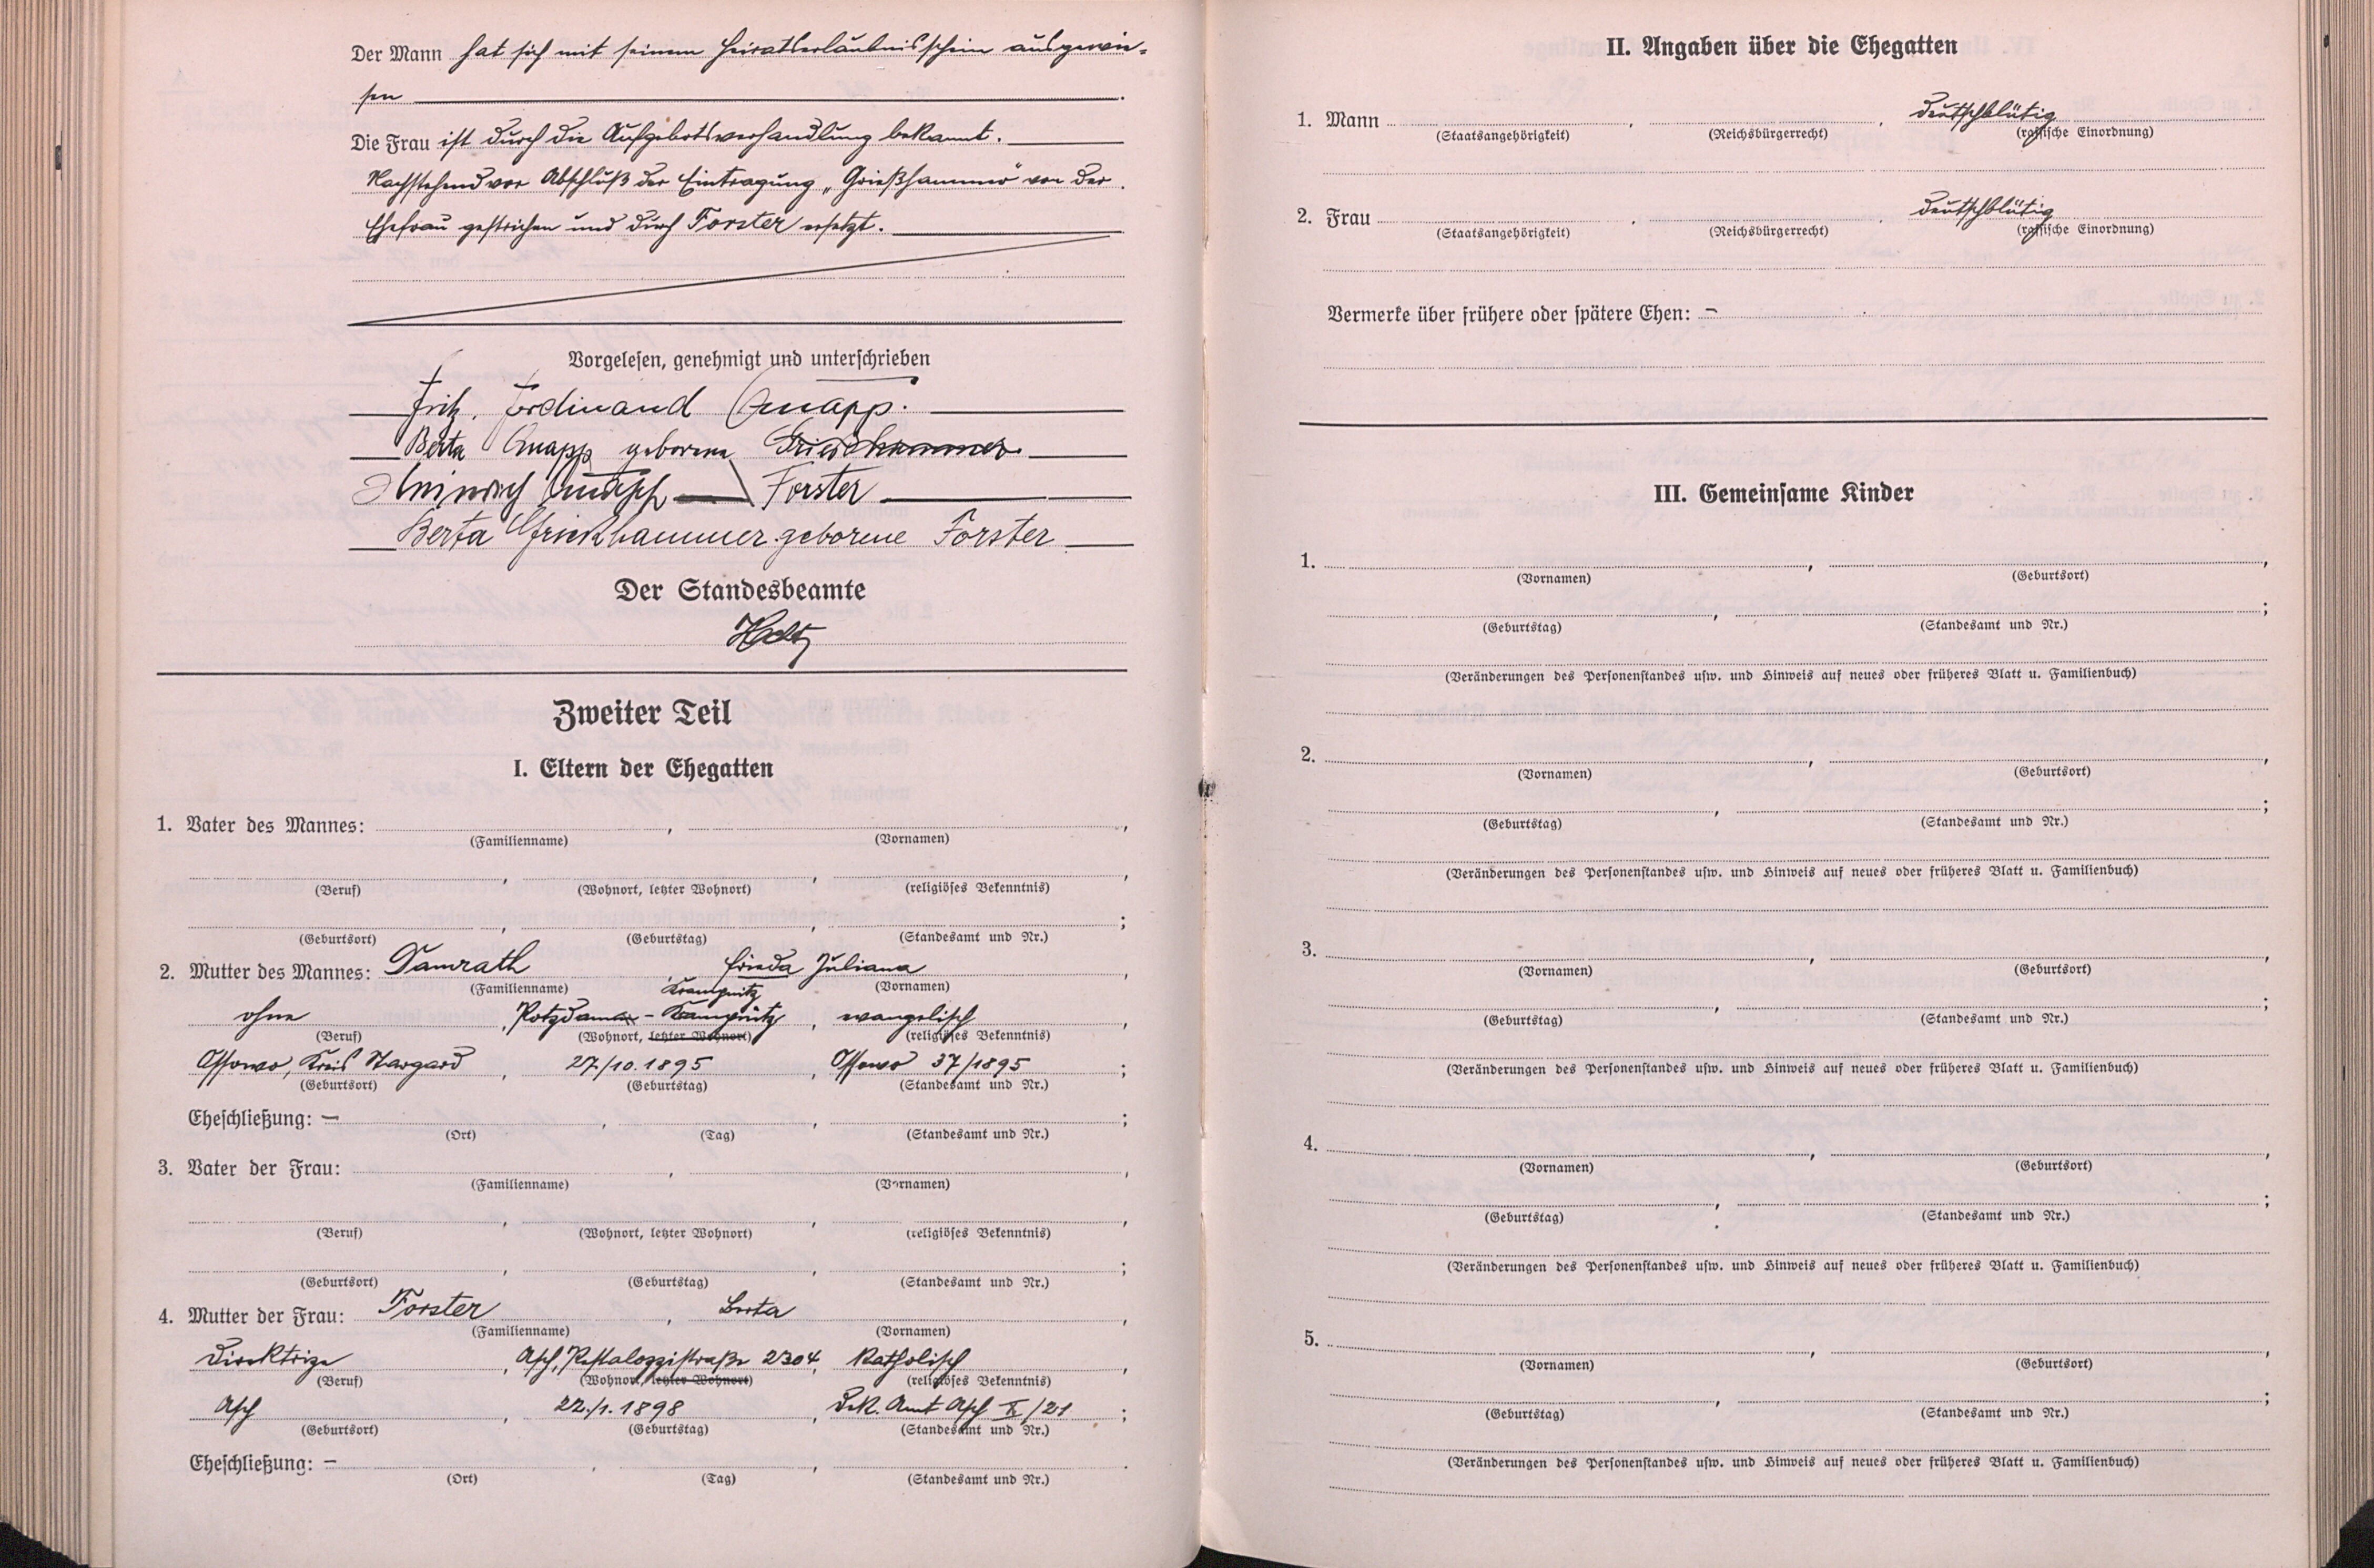 Der Mann hat sich mit seinem Heiratserlaubnisschein ausgewie-
sen
Die Frau ist durch die Aufgebotsverhandlung bekannt.
Nachstehend vor Abschluß der Eintragung „Grießhammer" von der
Ehefrau gestrichen und durch Forster ersetzt.
Vorgelesen, genehmigt und unterschrieben
Fritz Ferdinand Knapp.
Berta Knapp geborene Griesshammer
Heinrich Forster
Berta Griesshammer geborene Forster
Der Standesbeamte
Zweiter Teil
I. Eltern der Ehegatten
1. Vater des Mannes:
(Familienname) (Vornamen)
(Beruf) (Wohnort, letzter Wohnort) (religiöses Bekenntnis)
(Geburtsort) (Geburtstag) (Standesamt und Nr.)
2. Mutter des Mannes: Damrath, Frieda Juliana,
(Familienname) Krampnitz (Vornamen)
ohne, Potsdam - Krampnitz, evangelisch,
(Beruf) (Wohnort, letzter Wohnort) (religiöses Bekenntnis)
Ossowo, Kreis Stargard, 27./10.1895, Ossowo 37/1895;
(Geburtsort) (Geburtstag) (Standesamt und Nr.)
Eheschließung: –
(Ort) (Tag) (Standesamt und Nr.)
3. Vater der Frau:
(Familienname) (Vornamen)
(Beruf) (Wohnort, letzter Wohnort) (religiöses Bekenntnis)
(Geburtsort) (Geburtstag) (Standesamt und Nr.)
4. Mutter der Frau: Forster, Berta,
(Familienname) (Vornamen)
Direktrize, Asch, Pestalozzistraße 2304, katholisch,
(Beruf) (Wohnort, letzter Wohnort) (religiöses Bekenntnis)
Asch, 22./1.1898, Dek. Amt Asch X/21;
(Geburtsort) (Geburtstag) (Standesamt und Nr.)
Eheschließung: –
(Ort) (Tag) (Standesamt und Nr.)
II. Angaben über die Ehegatten
1. Mann deutschblütig
(Staatsangehörigkeit) (Reichsbürgerrecht) (rassische Einordnung)
2. Frau deutschblütig
(Staatsangehörigkeit) (Reichsbürgerrecht) (rassische Einordnung)
Vermerke über frühere oder spätere Ehen: –
III. Gemeinsame Kinder
1.
(Vornamen) (Geburtsort)
(Geburtstag) (Standesamt und Nr.)
(Veränderungen des Personenstandes usw. und Hinweis auf neues oder früheres Blatt u. Familienbuch)
2.
(Vornamen) (Geburtsort)
(Geburtstag) (Standesamt und Nr.)
(Veränderungen des Personenstandes usw. und Hinweis auf neues oder früheres Blatt u. Familienbuch)
3.
(Vornamen) (Geburtsort)
(Geburtstag) (Standesamt und Nr.)
(Veränderungen des Personenstandes usw. und Hinweis auf neues oder früheres Blatt u. Familienbuch)
4.
(Vornamen) (Geburtsort)
(Geburtstag) (Standesamt und Nr.)
(Veränderungen des Personenstandes usw. und Hinweis auf neues oder früheres Blatt u. Familienbuch)
5.
(Vornamen) (Geburtsort)
(Geburtstag) (Standesamt und Nr.)
(Veränderungen des Personenstandes usw. und Hinweis auf neues oder früheres Blatt u. Familienbuch)